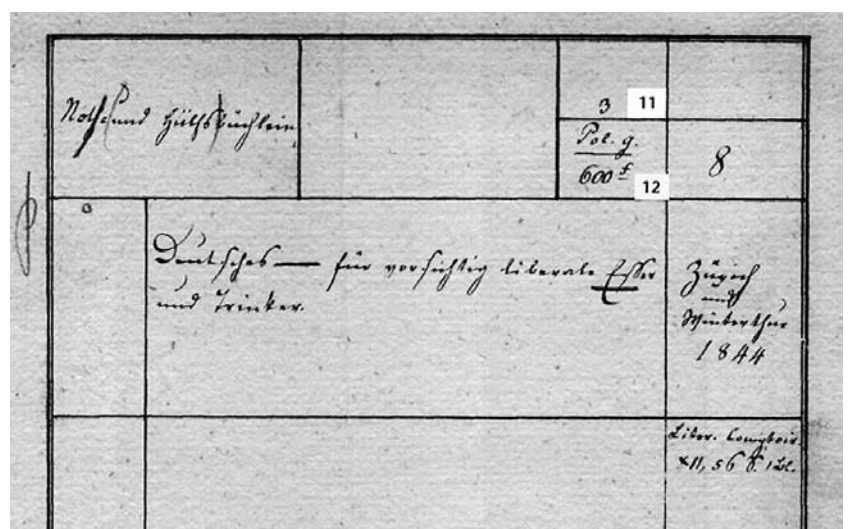 Noth- und Hülfsbüchlein,
3 11
Pol. g.
600 f 12
8
a
Deutsches — für vorsichtig liberale Esser
und Trinker.
Zürich
und
Winterthur
1844
Liter. Comptoir.
XII, 56 S. 1 Bl.